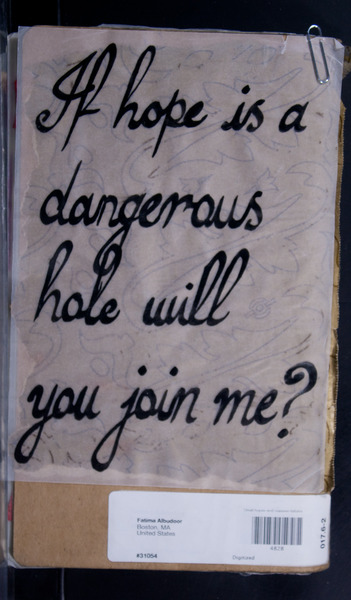 If hope is a
dangerous
hole will
you join me?
Fatima Albudoor
Boston, MA
United States
#31054
Digitized
4828
017.6-2